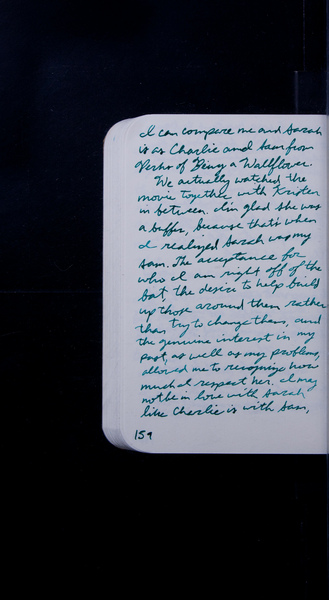 I can compare me and Sarah
is as Charlie and Sam from
Perks of Being a Wallflower.
We actually watched the
movie together with Kristen
in between. I'm glad she was
a buffer, because that's when
I realized Sarah was my
Sam. The acceptance for
who I am right off of the
bat, the desire to help build
up those around them rather
than try to change them, and
the genuine interest in my
past, as well as my problems,
allowed me to recognize how
much I respect her. I may
not be in love with Sarah
like Charlie is with Sam,
159